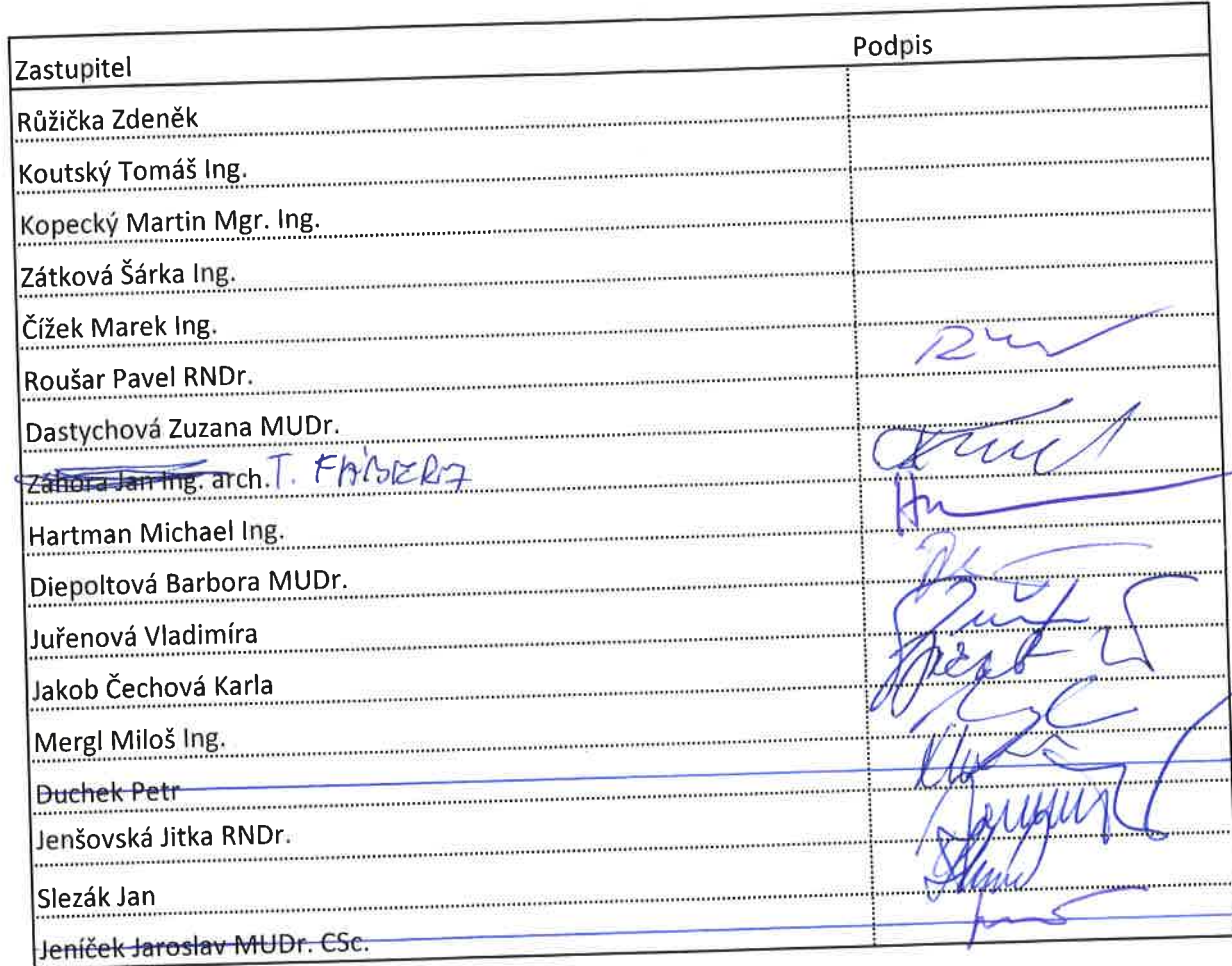 Zastupitel Podpis
Růžička Zdeněk
Koutský Tomáš Ing.
Kopecký Martin Mgr. Ing.
Zátková Šárka Ing.
Čížek Marek Ing.
Roušar Pavel RNDr.
Dastychová Zuzana MUDr.
Záhora Jan Ing. arch. T. FÁBERA
Hartman Michael Ing.
Diepoltová Barbora MUDr.
Juřenová Vladimíra
Jakob Čechová Karla
Mergl Miloš Ing.
Duchek Petr
Jenšovská Jitka RNDr.
Slezák Jan
Jeníček Jaroslav MUDr. CSc.